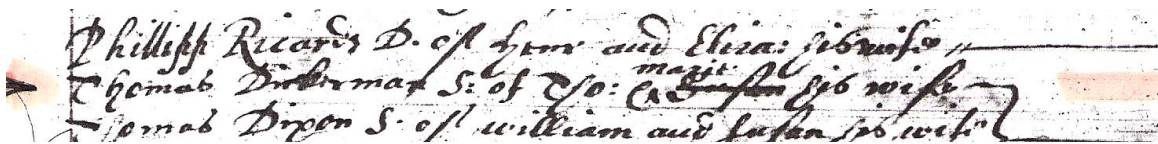 Phillipp Ricards D. of Henr and Eliza: his wife
Thomas Dickerman S: of Tho: & Susan marit his wife
Thomas Dixon S. of william and Susan his wife